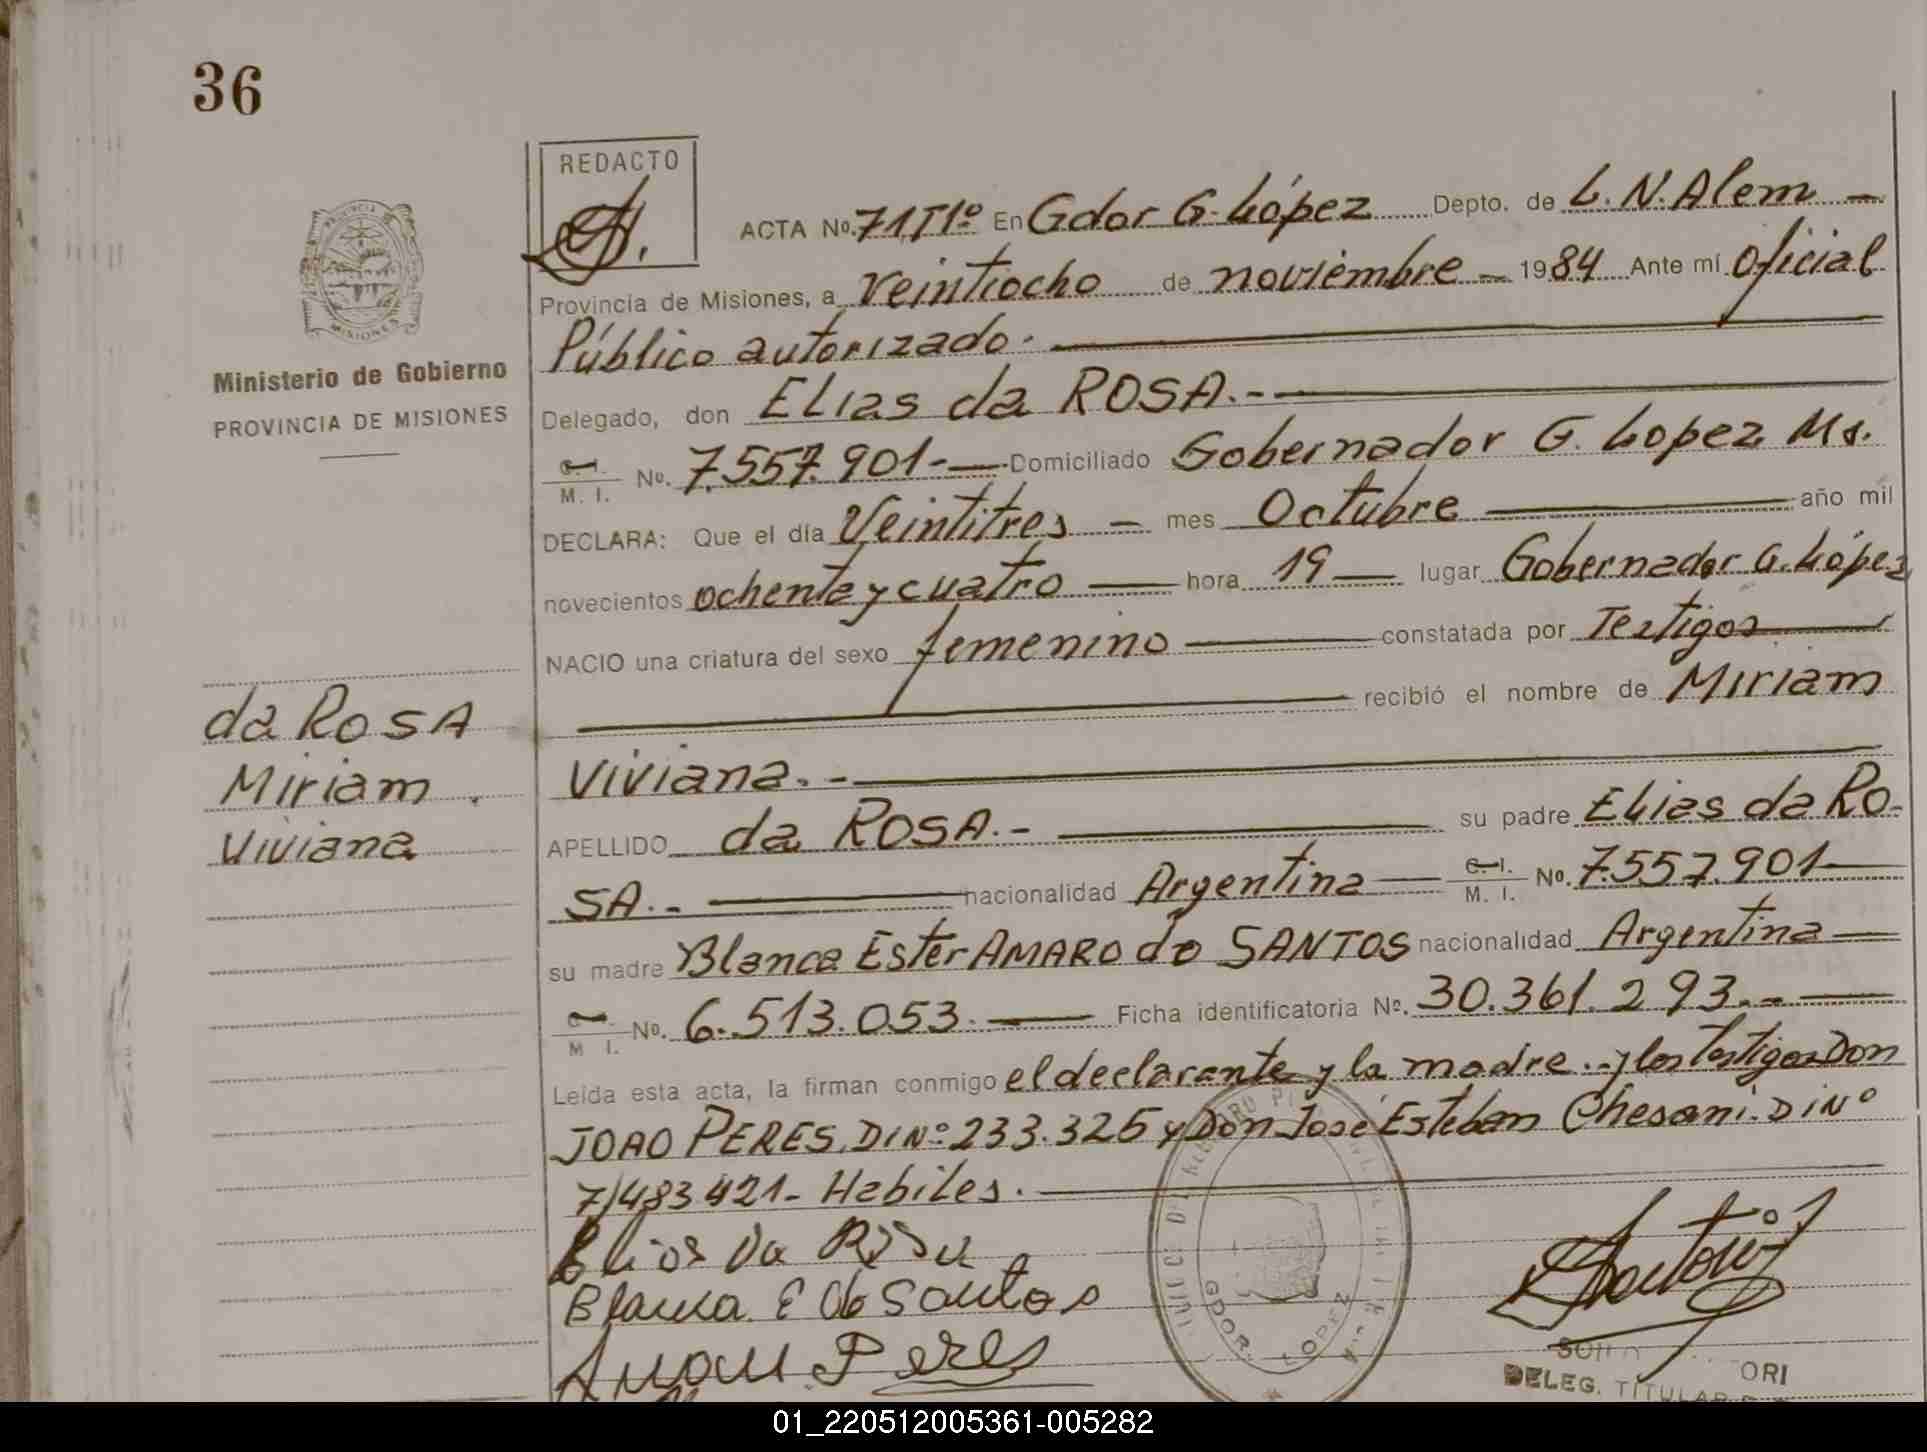 36
REDACTO
ACTA No. 71 T1º En Gdor G. López Depto. de L. N. Alem —
Provincia de Misiones, a veintiocho de noviembre — 1984 Ante mí Oficial
Público autorizado.
Ministerio de Gobierno
PROVINCIA DE MISIONES
Delegado, don ELias da ROSA.-
C. I.
M. I. No. 7.557.901.- Domiciliado Gobernador G. Lopez Ms.
DECLARA: Que el día Veintitres — mes Octubre año mil
novecientos ochenta y cuatro hora 19 lugar Gobernador G. López
NACIO una criatura del sexo femenino constatada por Testigos
recibió el nombre de Miriam
Viviana.-
da ROSA
Miriam
Viviana
APELLIDO da ROSA.- su padre ELias da RO-
SA.- nacionalidad Argentina C. I.
M. I. No. 7.557.901
su madre Blanca Ester AMARO do SANTOS nacionalidad Argentina
C. I.
M. I. No. 6.513.053. Ficha identificatoria No. 30.361.293.-
Leída esta acta, la firman conmigo el declarante y la madre.- y los Testigos Don
JOAO PERES, DINº 233.325 y Don José Esteban Chesani. DINº
7/483421- Habiles.
Elias Da Rosa
Blanca E do Santos
Juan Peres
GDOR. LOPEZ
DELEG. TITULAR
01_220512005361-005282